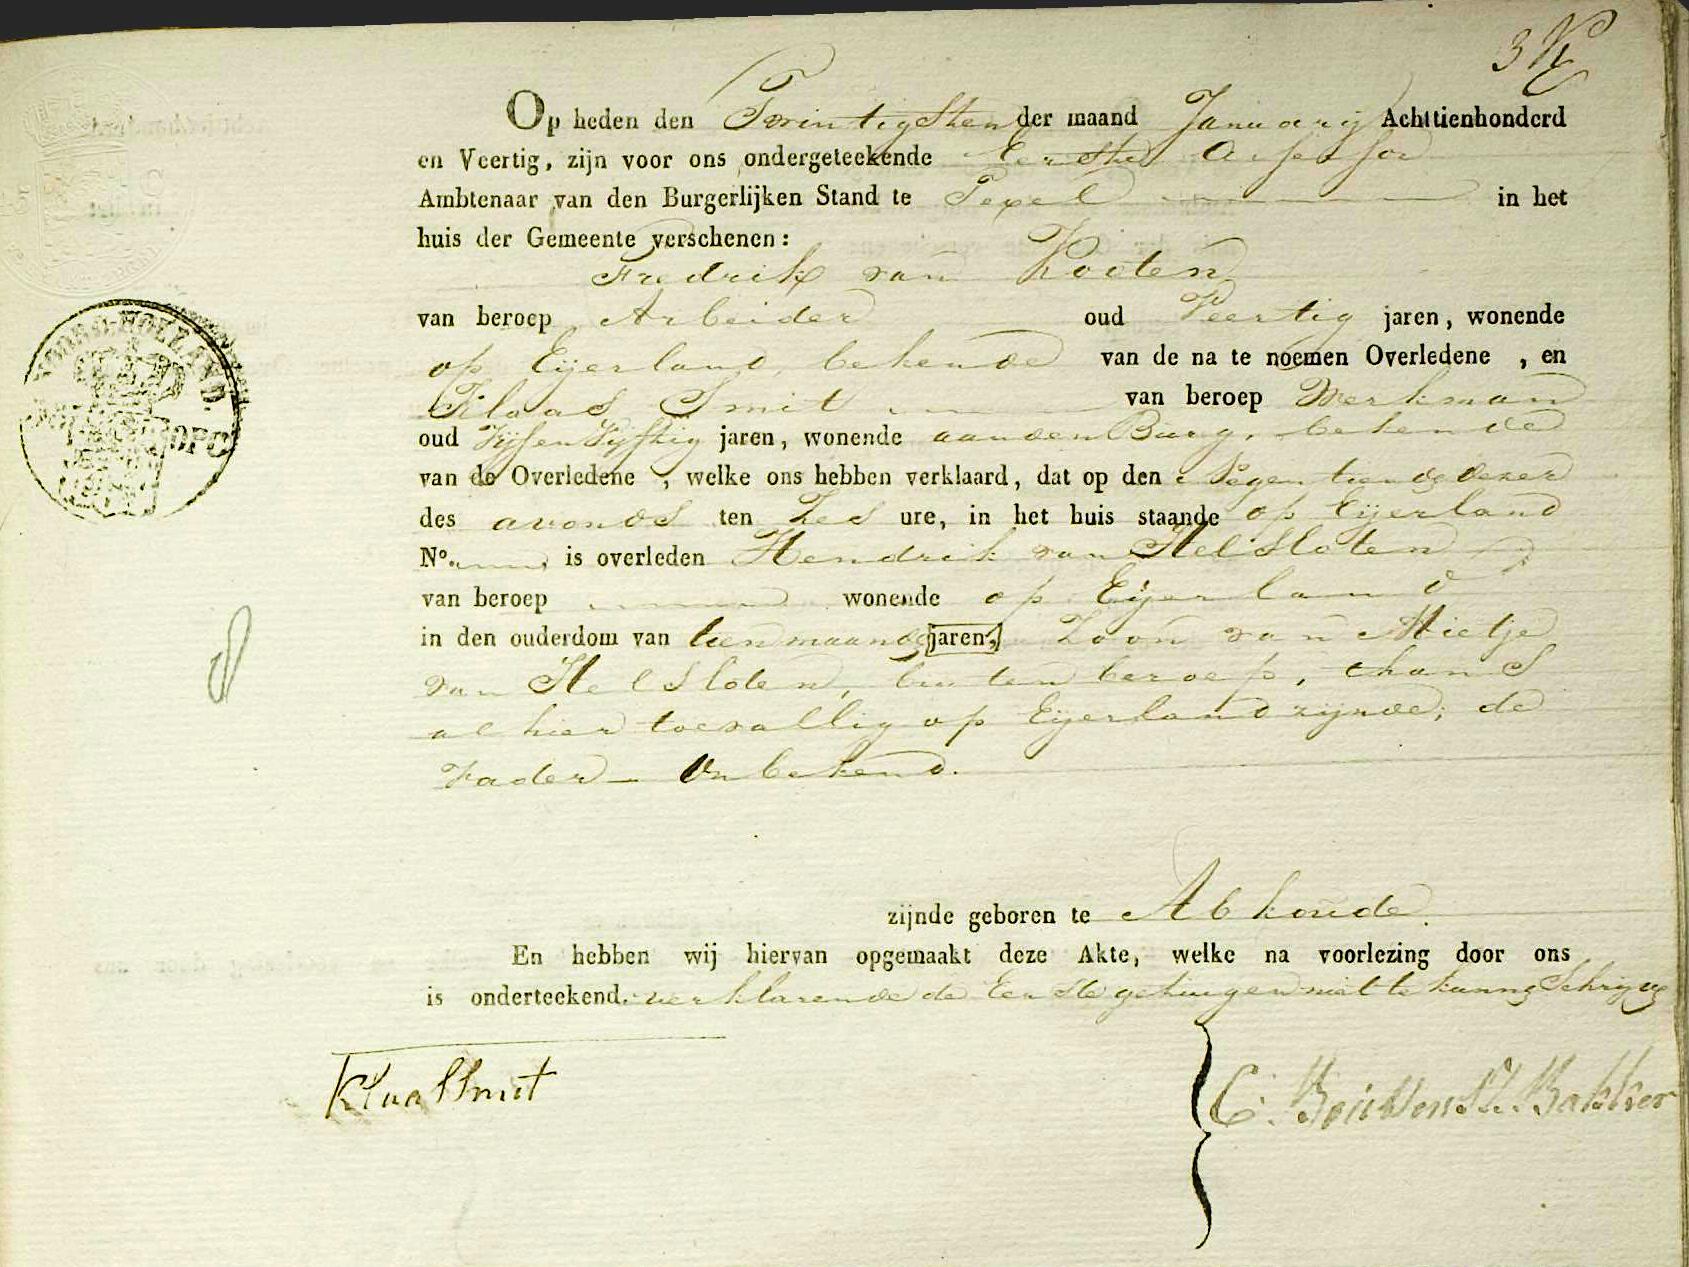 3
Op heden den Twintigsten der maand Januarij Achttienhonderd
en Veertig, zijn voor ons ondergeteekende Eerste Assessor
Ambtenaar van den Burgerlijken Stand te Texel in het
huis der Gemeente verschenen:
Fredrik van Kooten
van beroep Arbeider oud Veertig jaren, wonende
op Eijerland, bekende van de na te noemen Overledene , en
Klaas Smit van beroep Werkman
oud Vijfen Vijftig jaren, wonende aanden Burg, bekende
van de Overledene , welke ons hebben verklaard, dat op den Negentiende dezer
des avonds ten Zes ure, in het huis staande op Eijerland
No. is overleden Hendrik van Helsloten
van beroep wonende op Eijerland
in den ouderdom van tien maand jaren, Zoon van Mietje
van Helsloten, buiten beroep, thans
alhier toevallig op Eijerland zijnde; de
Vader - Onbekend.
zijnde geboren te Abkoude.
En hebben wij hiervan opgemaakt deze Akte, welke na voorlezing door ons
is onderteekend. verklarende de Eerste getuigen niet te kunnen Schrijven
Klaas Smit
C. Bakker